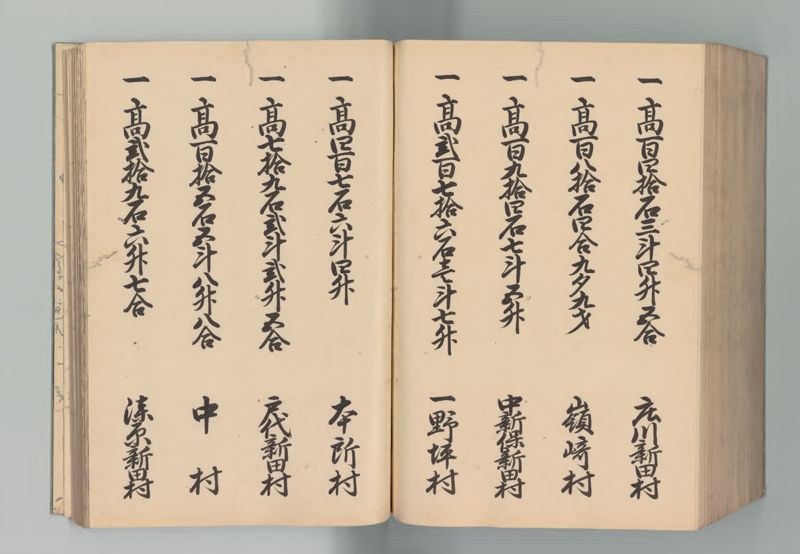 一 高百四拾石三斗四升五合 庄川新田村
一 高百八拾石四合九夕九才 嶺崎村
一 高百九拾四石七斗五升 中新保新田村
一 高弐百七拾六石壱斗七升 一野坪村
一 高四百七石六斗四升 本所村
一 高七拾九石弐斗弐升五合 戸代新田村
一 高百拾五石五斗八升八合 中村
一 高弐拾九石六升七合 新田村